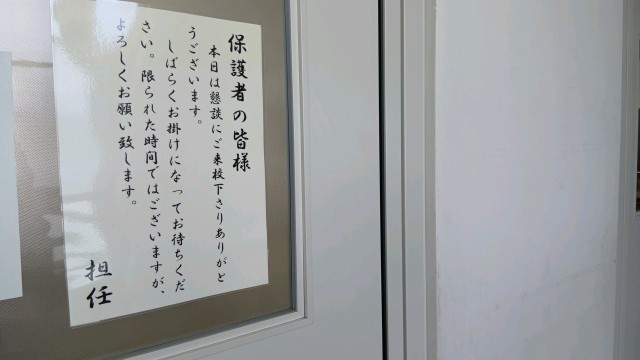 保護者の皆様
本日は懇談にご来校下さりありがと
うございます。
しばらくお掛けになってお待ちくだ
さい。限られた時間ではございますが、
よろしくお願い致します。
担任